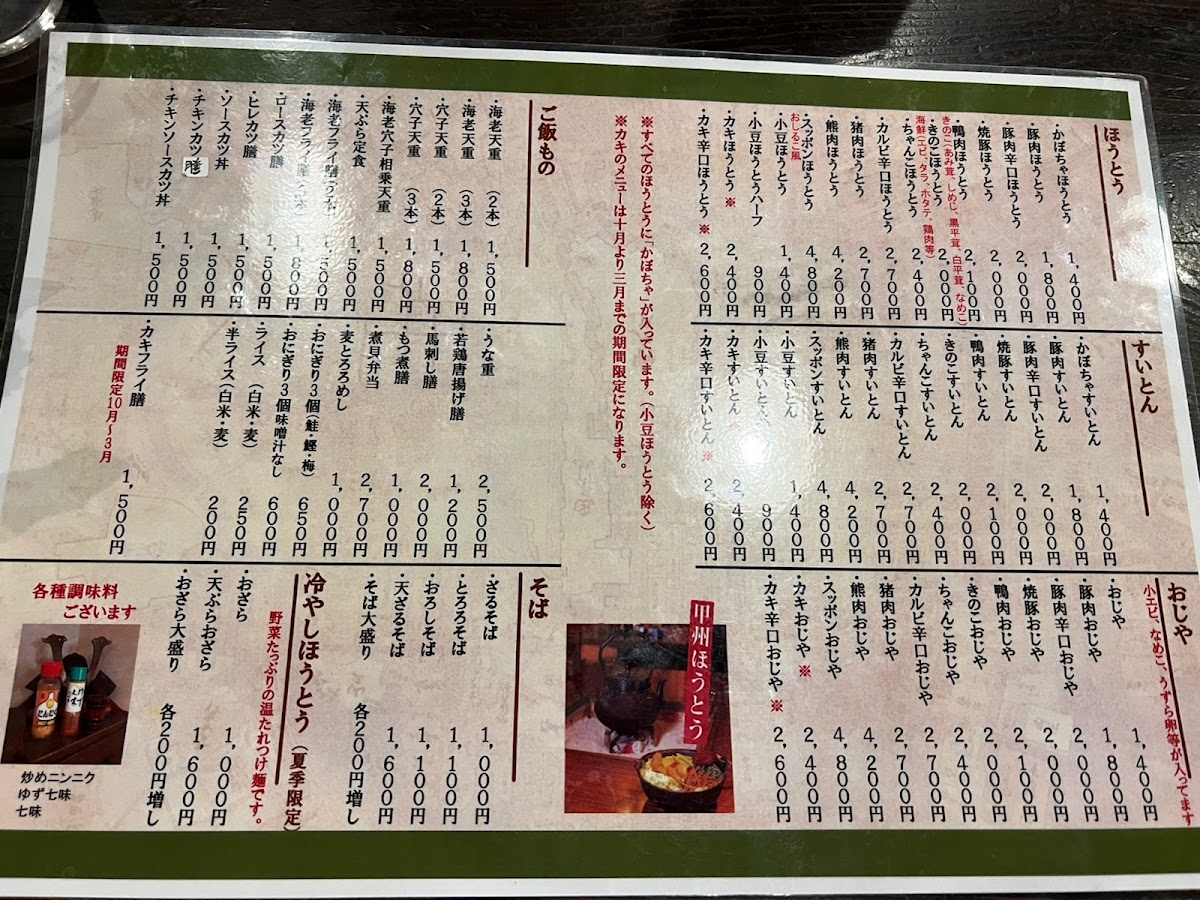 ほうとう
・かぼちゃほうとう 1,400円
・豚肉ほうとう 1,800円
・豚肉辛口ほうとう 2,000円
・焼豚ほうとう 2,000円
・鴨肉ほうとう 2,100円
きのこ(あみ茸、しめじ、黒平茸、白平茸、なめこ)
・きのこほうとう 2,000円
海鮮(エビ、タラ、ホタテ、鶏肉等)
・ちゃんこほうとう 2,400円
・カルビ辛口ほうとう 2,700円
・猪肉ほうとう 2,700円
・熊肉ほうとう 4,200円
・スッポンほうとう 4,800円
おしるこ風
・小豆ほうとう 1,400円
・小豆ほうとうハーフ 900円
・カキほうとう ※ 2,400円
・カキ辛口ほうとう ※ 2,600円
※すべてのほうとうに「かぼちゃ」が入っています。(小豆ほうとう除く)
※カキのメニューは十月より三月までの期間限定になります。
すいとん
・かぼちゃすいとん 1,400円
・豚肉すいとん 1,800円
・豚肉辛口すいとん 2,000円
・焼豚すいとん 2,000円
・鴨肉すいとん 2,100円
・きのこすいとん 2,000円
・ちゃんこすいとん 2,400円
・カルビ辛口すいとん 2,700円
・猪肉すいとん 2,700円
・熊肉すいとん 4,200円
・スッポンすいとん 4,800円
・小豆すいとん 1,400円
・小豆すいとん 900円
・カキすいとん ※ 2,400円
・カキ辛口すいとん ※ 2,600円
おじや
小エビ、なめこ、うずら卵等が入ってます
・おじや 1,400円
・豚肉おじや 1,800円
・豚肉辛口おじや 2,000円
・焼豚おじや 2,000円
・鴨肉おじや 2,100円
・きのこおじや 2,000円
・ちゃんこおじや 2,400円
・カルビ辛口おじや 2,700円
・猪肉おじや 2,700円
・熊肉おじや 4,200円
・スッポンおじや 4,800円
・カキおじや ※ 2,400円
・カキ辛口おじや ※ 2,600円
甲州ほうとう
ご飯もの
・海老天重 (2本) 1,500円
・海老天重 (3本) 1,800円
・穴子天重 (2本) 1,500円
・穴子天重 (3本) 1,800円
・海老穴子相乗天重 1,500円
・天ぷら定食 1,500円
・海老フライ膳 1,500円
・海老フライ膳 1,800円
・ロースカツ膳 1,500円
・ヒレカツ膳 1,500円
・ソースカツ丼 1,500円
・チキンカツ膳 1,500円
・チキンソースカツ丼 1,500円
・うな重 2,500円
・若鶏唐揚げ膳 1,200円
・馬刺し膳 2,000円
・もつ煮膳 1,000円
・煮貝弁当 2,700円
・麦とろろめし 1,000円
・おにぎり3個(鮭・鰹・梅) 650円
・おにぎり3個味噌汁なし 600円
・ライス (白米・麦) 250円
・半ライス(白米・麦) 200円
・カキフライ膳 1,500円
期間限定10月~3月
そば
・ざるそば 1,000円
・とろろそば 1,100円
・おろしそば 1,100円
・天ざるそば 1,600円
・そば大盛り 各200円増し
冷やしほうとう(夏季限定)
野菜たっぷりの温たれつけ麺です。
・おざら 1,000円
・天ぷらおざら 1,600円
・おざら大盛り 各200円増し
各種調味料
ございます
炒めニンニク
ゆず七味
七味